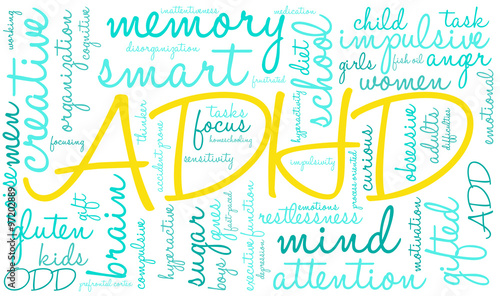 inattentiveness
memory
disorganization
smart
frustrated
diet
school
child
task
impulsive
girls
fish oil
anger
women
emotional
working
creative
organization
cognitive
men
focusing
thinker
accident prone
tasks
focus
homeschooling
sensitivity
hyperactivity
impulsivity
curious
process oriented
obsessive
adults
difficulties
ADHD
gift
gluten
kids
ODD
brain
prefrontal cortex
compulsive
hyperactive
sugar
boys
genes
fast-paced
executive function
depression
emotions
restlessness
mind
attention
gifted
ADD
Adobe Stock | #97202889